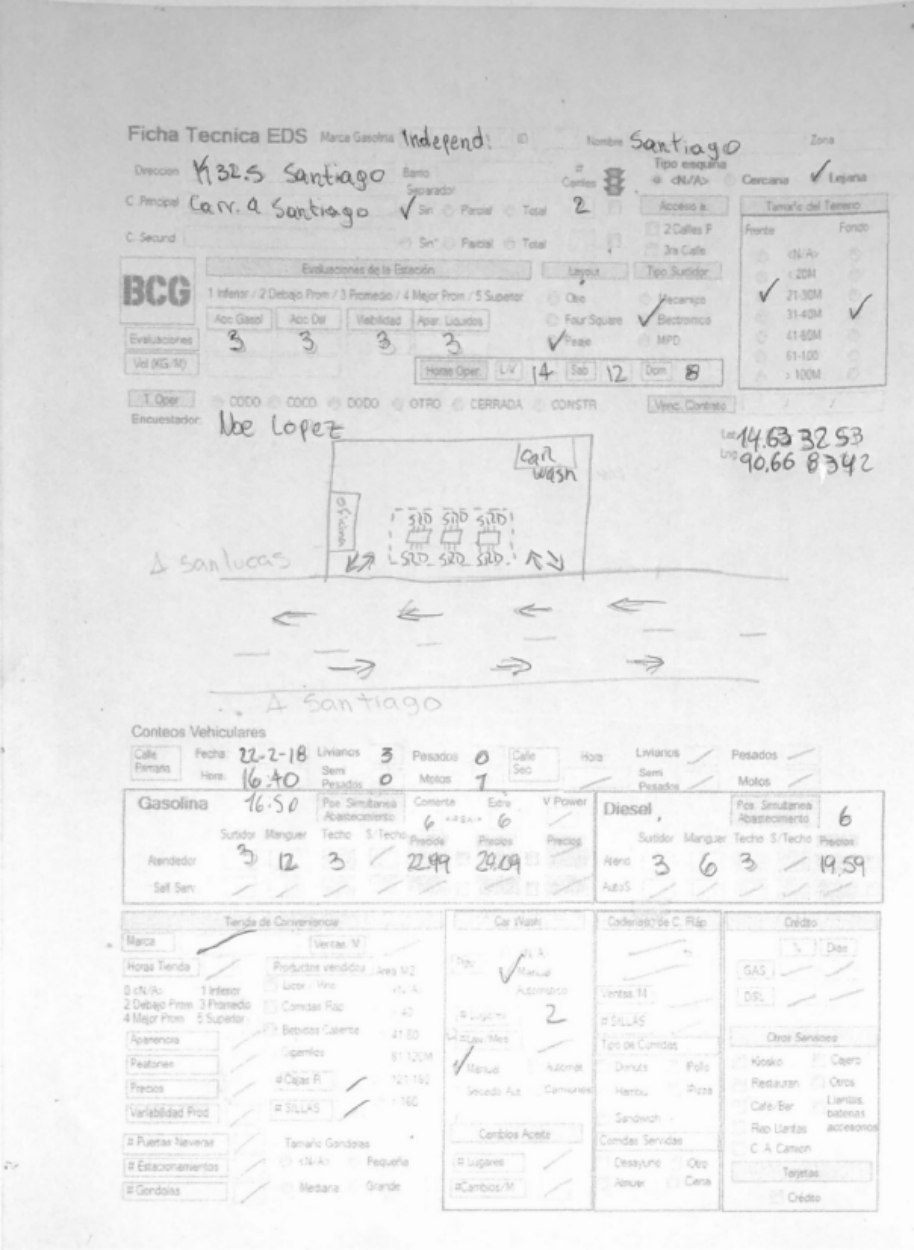 Ficha Tecnica EDS Marca Gasolina Independ. ID Nombre Santiago Zona
Direccion K 32.5 Santiago Barrio # Carriles Tipo esquina <N/A> Cercana ✓ Lejana
Separador
C. Principal Carr. a Santiago ✓ Sin Parcial Total 2 Acceso a Tamaño del Terreno
2 Calles P Frente Fondo
C. Secund Sin Parcial Total 3ra Calle <N/A>
BCG Evaluaciones de la Estación Layout Tipo Surtidor < 20M
1 Inferior / 2 Debajo Prom / 3 Promedio / 4 Mejor Prom / 5 Superior Otro Mecanico ✓ 21-30M
Acc Gasol Acc Dsl Visibilidad Apar. Liquidos Four Square ✓ Electronico 31-40M ✓
Evaluaciones 3 3 3 3 ✓ Peaje MPD 41-60M
61-100
Vol (KG/M) Horas Oper. L-V 14 Sab 12 Dom 8 > 100M
T. Oper CODO COCO DODO OTRO CERRADA CONSTR Venc. Contrato / /
Encuestador: Noe Lopez
Lat 14.63 32 53
Lng 90.66 8342
car
wash
oficina
SRD SRD SRD
SRD SRD SRD
A san lucas
A Santiago
Conteos Vehiculares
Calle Primaria Fecha: 22-2-18 Livianos 3 Pesados 0 Calle Sec Hora Livianos Pesados
Hora: 16:40 Semi Pesados 0 Motos 1 Semi Pesados Motos
Gasolina 16:50 Pos. Simultanea Abastecimiento Corriente 6 Extra 6 V Power Diesel Pos. Simultanea Abastecimiento 6
Surtidor Manguer Techo S/Techo Precios Precios Precios Surtidor Manguer Techo S/Techo Precios
Atendedor 3 12 3 22.99 Atend 3 6 3 19.59
Self Serv AutoS
Tienda de Conveniencia Car Wash Cadenas de C. Ráp. Crédito
Marca Ventas /M % Dias
Horas Tienda Productos vendidos Area M2 Tipo N/A GAS
0 <N/A> 1 Inferior Licor / Vino <N/A> ✓ Manual DSL
2 Debajo Prom 3 Promedio Comidas Ráp < 40 Automático Ventas /M
4 Mejor Prom 5 Superior # Lugares 2 # SILLAS
Apariencia Bebidas Caliente 41-80 # Lav/Mes Tipo de Comidas Otros Servicios
Peatones Cigarrillos 81-120M ✓ Manual Automat Donuts Pollo Kiosko Cajero
Precios # Cajas R 121-160 Secado Aut Camiones Hambu Pizza Restauran Otros
Variabilidad Prod # SILLAS > 160 Sandwich Café/Bar Llantas, baterias accesorios
# Puertas Neveras Tamaño Gondolas Cambios Aceite Comidas Servidas Rep Llantas
# Estacionamientos <N/A> Pequeña # Lugares Desayuno Otro C. A. Camion
# Gondolas Mediana Grande # Cambios/M Almuer Cena Tarjetas
Crédito